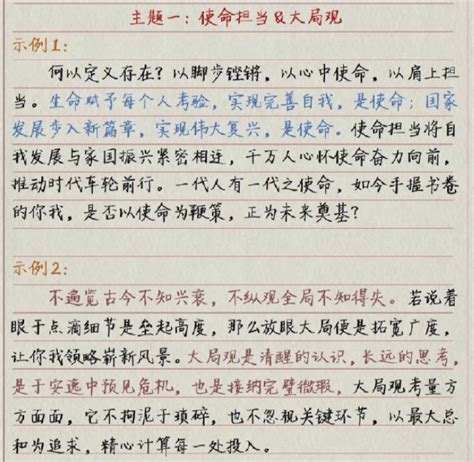 主题一：使命担当&大局观
示例1：
何以定义存在？以脚步铿锵，以心中使命，以肩上担
当。生命赋予每个人考验，实现完善自我，是使命；国家
发展步入新篇章，实现伟大复兴，是使命。使命担当将自
我发展与家国振兴紧密相连，千万人心怀使命奋力向前，
推动时代车轮前行。一代人有一代之使命，如今手握书卷
的你我，是否以使命为鞭策，正为未来奠基？
示例2：
不遍览古今不知兴衰，不纵观全局不知得失。若说着
眼于点滴细节是垒起高度，那么放眼大局便是拓宽广度，
让你我领略崭新风景。大局观是清醒的认识，长远的思考，
是于安逸中预见危机，也是接纳完璧微瑕，大局观考量方
方面面，它不拘泥于琐碎，也不忽视关键环节，以最大总
和为追求，精心计算每一处投入。